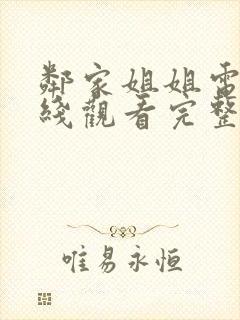 鄰家姐姐電
綫觀看完整
唯易永恒